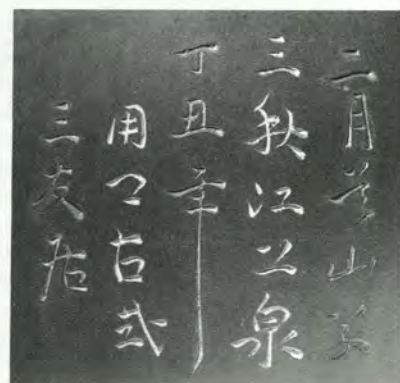 二月山
三秋江上泉
丁丑年
用古式
三友居